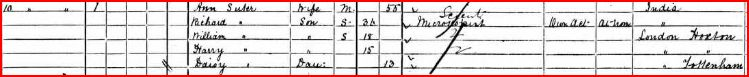 10 " " 1 Ann Suter Wife M. 55 India
Richard " Son S. 26 Scient: Microscopist Own Act. At Hom "
William " " S 18 London Hoxton
Harry " " 15 " "
Daisy " Dau: 13 " Tottenham